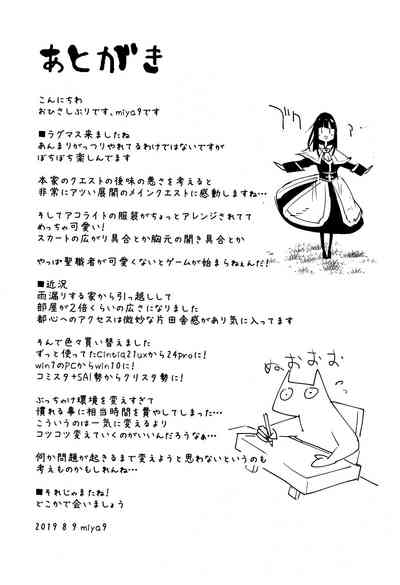 あとがき
こんにちわ
おひさしぶりです、miya9です
■ラグマス来ましたね
あんまりがっつりやれてるわけではないですが
ぼちぼち楽しんでます
本家のクエストの後味の悪さを考えると
非常にアツい展開のメインクエストに感動しますね…
そしてアコライトの服装がちょっとアレンジされてて
めっちゃ可愛い!
スカートの広がり具合とか胸元の開き具合とか
やっぱ聖職者が可愛くないとゲームが始まらねぇんだ!
■近況
雨漏りする家から引っ越しして
部屋が2倍くらいの広さになりました
都心へのアクセスは微妙な片田舎感があり気に入ってます
そんで色々買い替えました
ずっと使ってたCintiq21uxから24proに!
win7のPCからwin10に!
コミスタ+SAI勢からクリスタ勢に!
ぶっちゃけ環境を変えすぎて
慣れる事に相当時間を費やしてしまった…
こういうのは一気に変えるより
コツコツ変えていくのがいいんだろうなぁ…
何か問題が起きるまで変えようと思わないというのも
考えものかもしれんね…
■それじゃまたね!
どこかで会いましょう
2019 8 9 miya9
ブヒ
…?
ぬおおおお